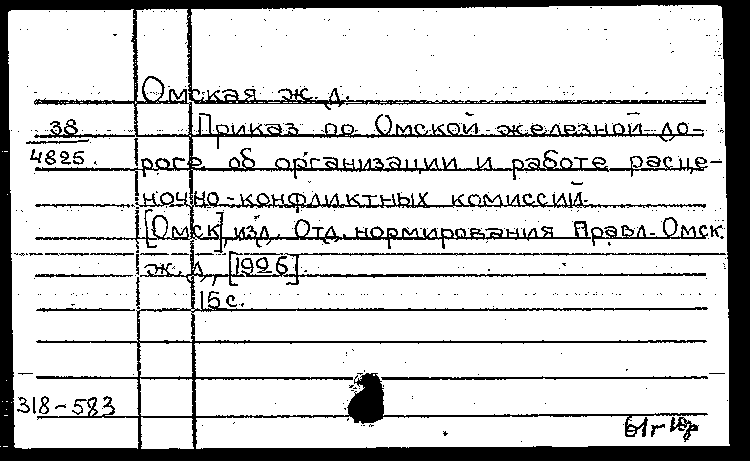 Омская ж. д.
38
4825.
Приказ по Омской железной до-
роге об организации и работе расце-
ночно-конфликтных комиссий.
[Омск], изд. Отд. нормирования Правл. Омск.
ж. д., [1926].
15 с.
318-583
61г